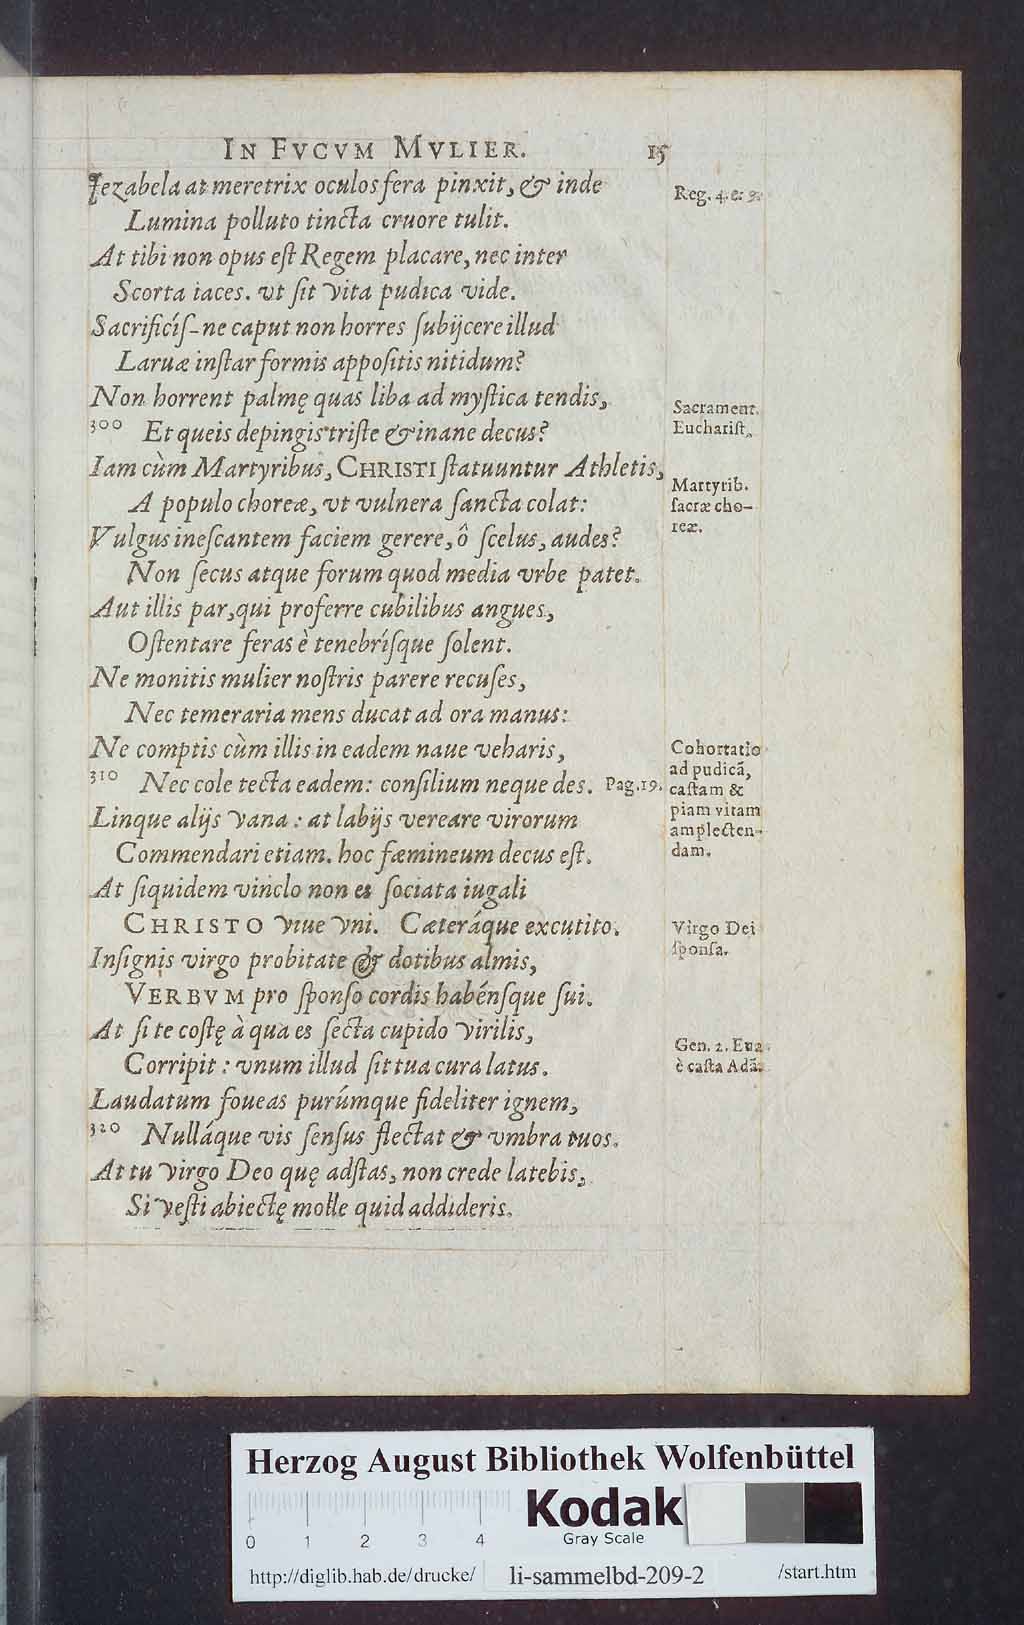 IN FVCVM MVLIER. 15
Iezabela at meretrix oculos fera pinxit, & inde
Reg. 4. c. 9.
Lumina polluto tincta cruore tulit.
At tibi non opus eſt Regem placare, nec inter
Scorta iaces. vt ſit vita pudica vide.
Sacrificíſ-ne caput non horres ſubijcere illud
Laruæ inſtar formis appoſitis nitidum?
Non horrent palmę quas liba ad myſtica tendis,
Sacrament.
Euchariſt.
300 Et queis depingis triſte & inane decus?
Iam cùm Martyribus, CHRISTI ſtatuuntur Athletis,
Martyrib.
ſacræ cho-
reæ.
A populo choreæ, vt vulnera ſancta colat:
Vulgus ineſcantem faciem gerere, ô ſcelus, audes?
Non ſecus atque forum quod media vrbe patet.
Aut illis par, qui proferre cubilibus angues,
Oſtentare feras è tenebríſque ſolent.
Ne monitis mulier noſtris parere recuſes,
Nec temeraria mens ducat ad ora manus:
Ne comptis cùm illis in eadem naue veharis,
Cohortatio
ad pudicā,
caſtam &
piam vitam
amplecten-
dam.
310 Nec cole tecta eadem: conſilium neque des. Pag.19.
Linque alijs vana: at labijs vereare virorum
Commendari etiam. hoc fæmineum decus eſt.
At ſiquidem vinclo non es ſociata iugali
CHRISTO viue vni. Cæteráque excutito.
Virgo Dei
ſponſa.
Inſignis virgo probitate & dotibus almis,
VERBVM pro ſponſo cordis habénſque ſui.
At ſi te coſtę à qua es ſecta cupido virilis,
Gen. 2. Eua
è caſta Adā.
Corripit: vnum illud ſit tua cura latus.
Laudatum foueas purúmque fideliter ignem,
320 Nulláque vis ſenſus flectat & vmbra tuos.
At tu virgo Deo quę adſtas, non crede latebis,
Si veſti abiectę molle quid addideris.
Herzog August Bibliothek Wolfenbüttel
0 1 2 3 4
Kodak
Gray Scale
http://diglib.hab.de/drucke/ li-sammelbd-209-2 /start.htm